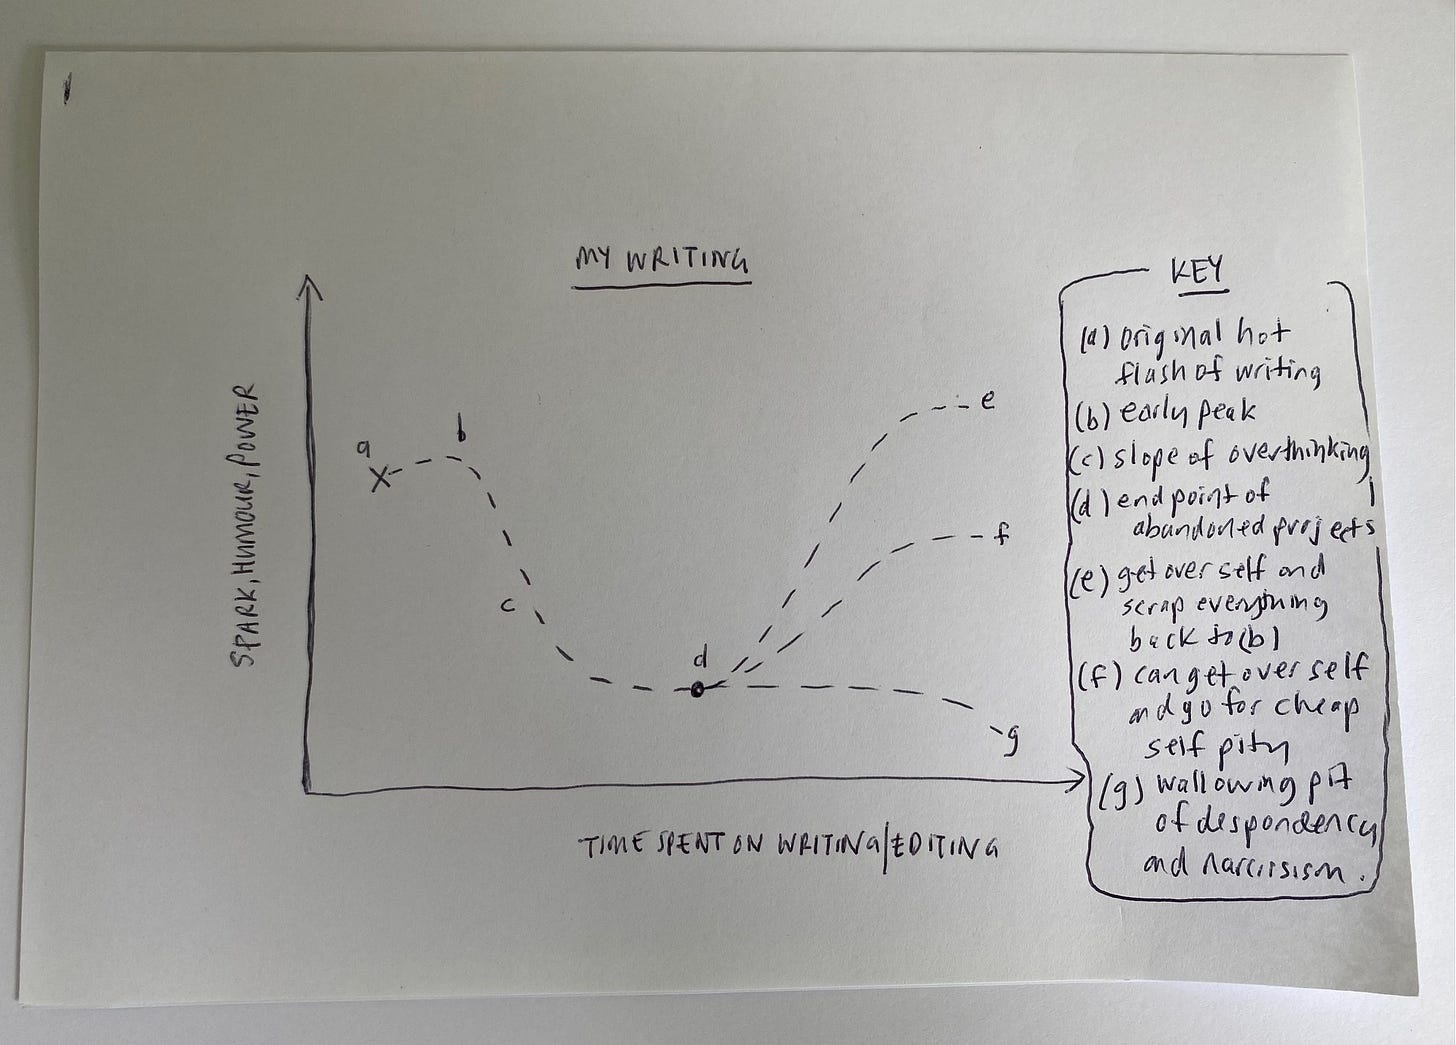 MY WRITING
SPARK, HUMOUR, POWER
a
b
c
d
e
f
g
TIME SPENT ON WRITING/EDITING
KEY
(a) original hot
flash of writing
(b) early peak
(c) slope of overthinking
(d) end point of
abandoned projects
(e) get over self and
scrap everything
back to (b)
(f) can get over self
and go for cheap
self pity
(g) wallowing pit
of despondency
and narcissism.